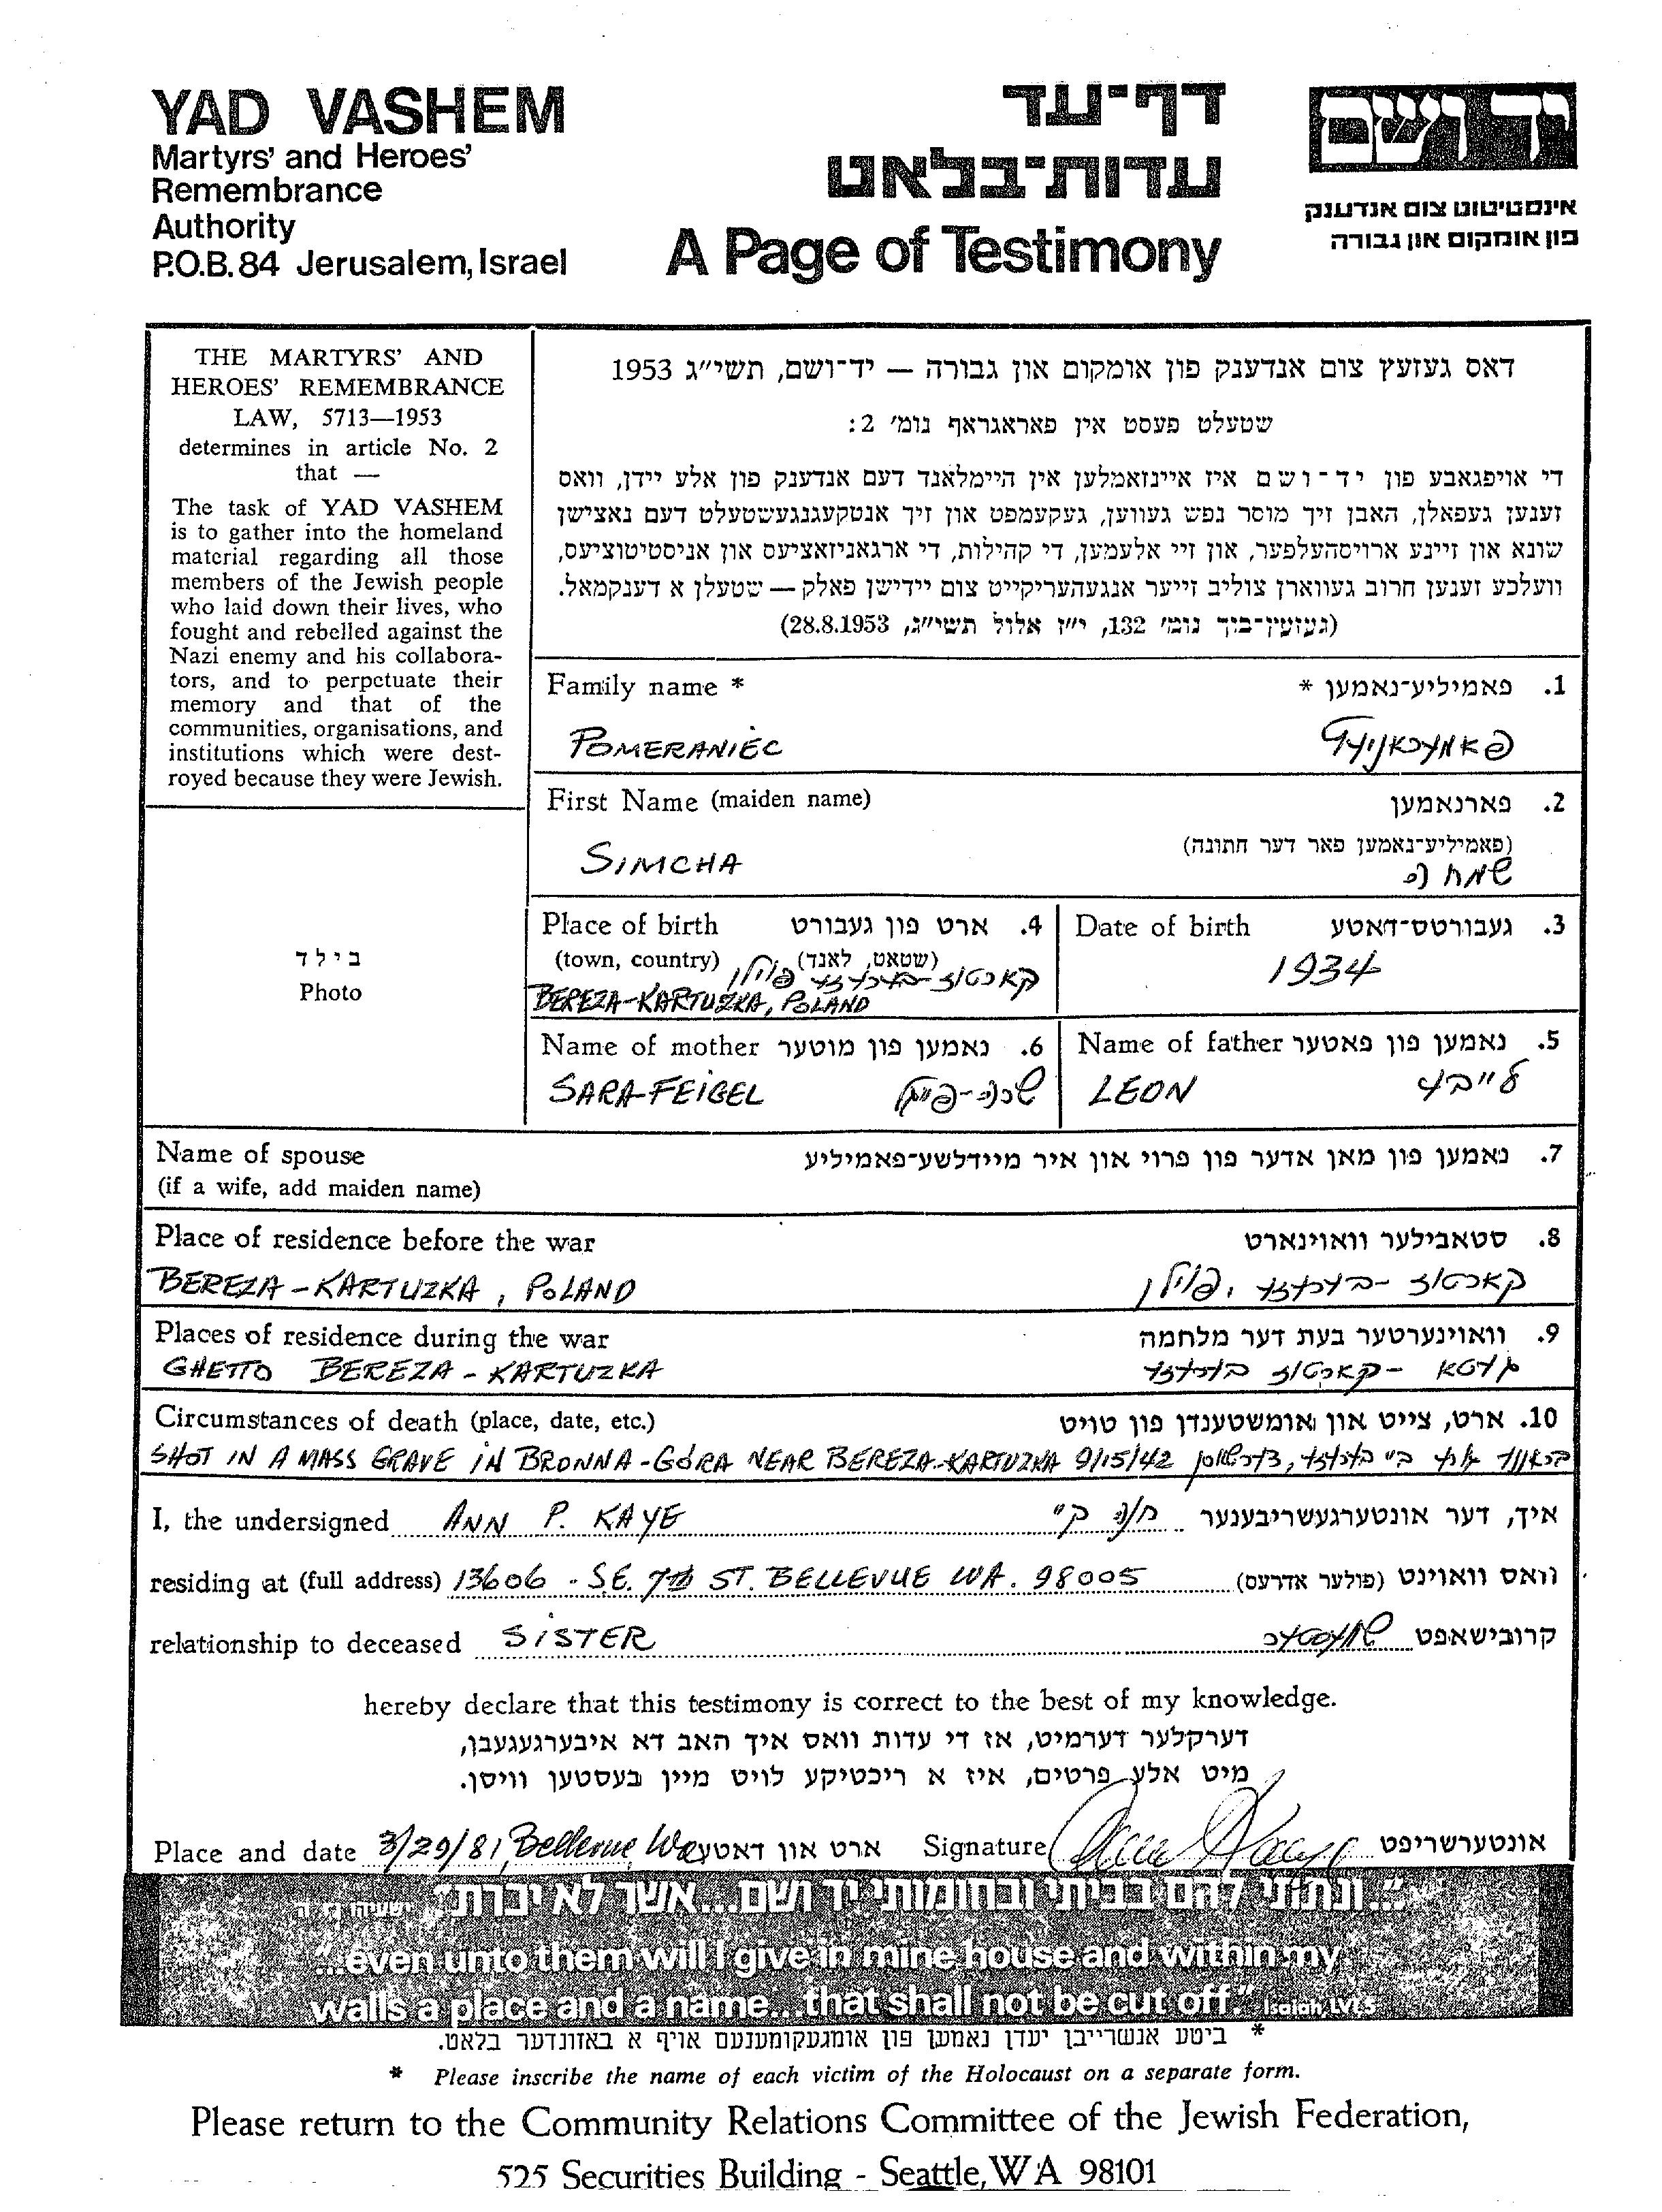 YAD VASHEM
Martyrs' and Heroes'
Remembrance
Authority
P.O.B. 84 Jerusalem, Israel
דף־עד
עדות־בלאט
A Page of Testimony
יד ושם
אינסטיטוט צום אנדענק
פון אומקום און גבורה
THE MARTYRS' AND
HEROES' REMEMBRANCE
LAW, 5713—1953
determines in article No. 2
that —
The task of YAD VASHEM
is to gather into the homeland
material regarding all those
members of the Jewish people
who laid down their lives, who
fought and rebelled against the
Nazi enemy and his collabora-
tors, and to perpetuate their
memory and that of the
communities, organisations, and
institutions which were dest-
royed because they were Jewish.
בילד
Photo
דאס געזעץ צום אנדענק פון אומקום און גבורה — יד־ושם, תשי״ג 1953
שטעלט פעסט אין פאראגראף נומ׳ 2:
די אויפגאבע פון יד־ושם איז איינזאמלען אין היימלאנד דעם אנדענק פון אלע יידן, וואס
זענען געפאלן, האבן זיך מוסר נפש געווען, געקעמפט און זיך אנטקעגנגעשטעלט דעם נאצישן
שונא און זיינע ארויסהעלפער, און זיי אלעמען, די קהילות, די ארגאניזאציעס און אניסטיטוציעס,
וועלכע זענען חרוב געווארן צוליב זייער אנגעהעריקייט צום יידישן פאלק — שטעלן א דענקמאל.
(געזעץ־ביך נומ׳ 132, י״ז אלול תשי״ג, 28.8.1953)
Family name * 1. פאמיליע־נאמען *
POMERANIEC פאמעראניעץ
First Name (maiden name) 2. פארנאמען
(פאמיליע־נאמען פאר דער חתונה)
SIMCHA שמחה
Place of birth 4. ארט פון געבורט
(town, country) (שטאט, לאנד)
קארטוז-בערעזע פוילן
BEREZA-KARTUZKA, POLAND
Date of birth 3. געבורטס־דאטע
1934
Name of mother 6. נאמען פון מוטער
SARA-FEIGEL שרה-פייגל
Name of father 5. נאמען פון פאטער
LEON לייבע
Name of spouse 7. נאמען פון מאן אדער פון פרוי און איר מיידלשע־פאמיליע
(if a wife, add maiden name)
Place of residence before the war 8. סטאבילער וואוינארט
BEREZA-KARTUZKA, POLAND קארטוז-בערעזע, פוילן
Places of residence during the war 9. וואוינערטער בעת דער מלחמה
GHETTO BEREZA-KARTUZKA געטא - קארטוז בערעזע
Circumstances of death (place, date, etc.) 10. ארט, צייט און אומשטענדן פון טויט
SHOT IN A MASS GRAVE IN BRONNA-GÓRA NEAR BEREZA-KARTUZKA 9/15/42 ביי בערעזע, דערשאסן
I, the undersigned ANN P. KAYE חנה קיי איך, דער אונטערגעשריבענער
residing at (full address) 13606 - S.E. 7th ST. BELLEVUE WA. 98005 וואס וואוינט (פולער אדרעס)
relationship to deceased SISTER שוועסטער קרובישאפט
hereby declare that this testimony is correct to the best of my knowledge.
דערקלער דערמיט, אז די עדות וואס איך האב דא איבערגעגעבן,
מיט אלע פרטים, איז א ריכטיקע לויט מיין בעסטען וויסן.
Place and date 3/29/81, Bellevue Wa ארט און דאטע Signature Ann Kaye אונטערשריפט
"...ונתתי להם בביתי ובחומותי יד ושם...אשר לא יכרת" ישעיהו נו, ה
"...even unto them will I give in mine house and within my
walls a place and a name...that shall not be cut off." Isaiah, LVI, 5
* ביטע אנשרייבן יעדן נאמען פון אומגעקומענעם אויף א באזונדער בלאט.
* Please inscribe the name of each victim of the Holocaust on a separate form.
Please return to the Community Relations Committee of the Jewish Federation,
525 Securities Building - Seattle, WA 98101